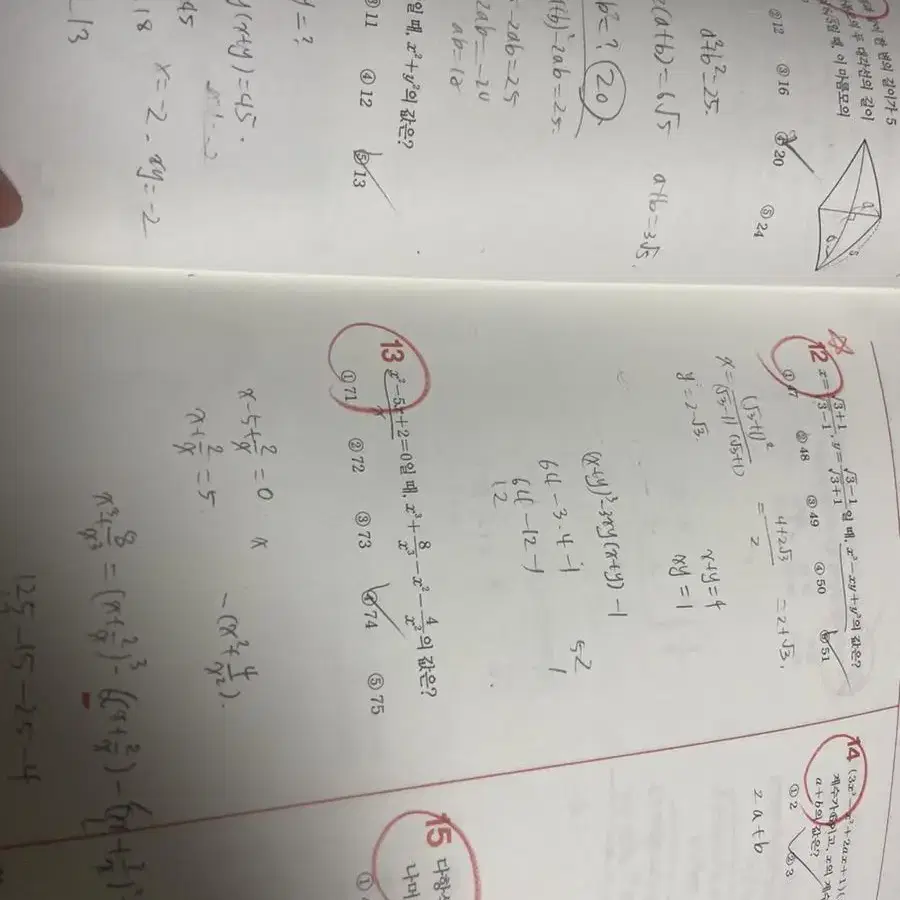 한 변의 길이가 5
두 대각선의 길이
이 마름모의
②12 ③16 ④20 ⑤24
a²+b²=25.
2(a+b)=6√5 a+b=3√5.
b²=? 20
(a+b)²-2ab=25.
-2ab=25
2ab=-20
일 때, x²+y²의 값은?
③ 11 ④ 12 ⑤ 13
y=?
y(x+y)=45.
45
x=-2. xy=-2
18
-13
12 x=√3+1/√3-1, y=√3-1/√3+1일 때, x³-xy+y³의 값은?
①47 ②48 ③49 ④50 ⑤51
x=(√3+1)²/(√3-1)(√3+1) =4+2√3/2 =2+√3,
y=2-√3.
x+y=4
xy=1
(x+y)³-3xy(x+y)-1
64-3·4-1
64-12-1
12
52
1
13 x²-5x+2=0일 때, x³+8/x³-x²-4/x²의 값은?
①71 ②72 ③73 ④74 ⑤75
x-5+2/x=0
x+2/x=5.
-(x²+4/x²).
x³+8/x³=(x+2/x)³-6(x+2/x)-(x+2/x)²
125-15-25-4
14 (3x³-x²+2ax+1)(
계수가
x의 계수
a+b의 값은?
①2 ②3
2a+b
15 다항식
나머
①